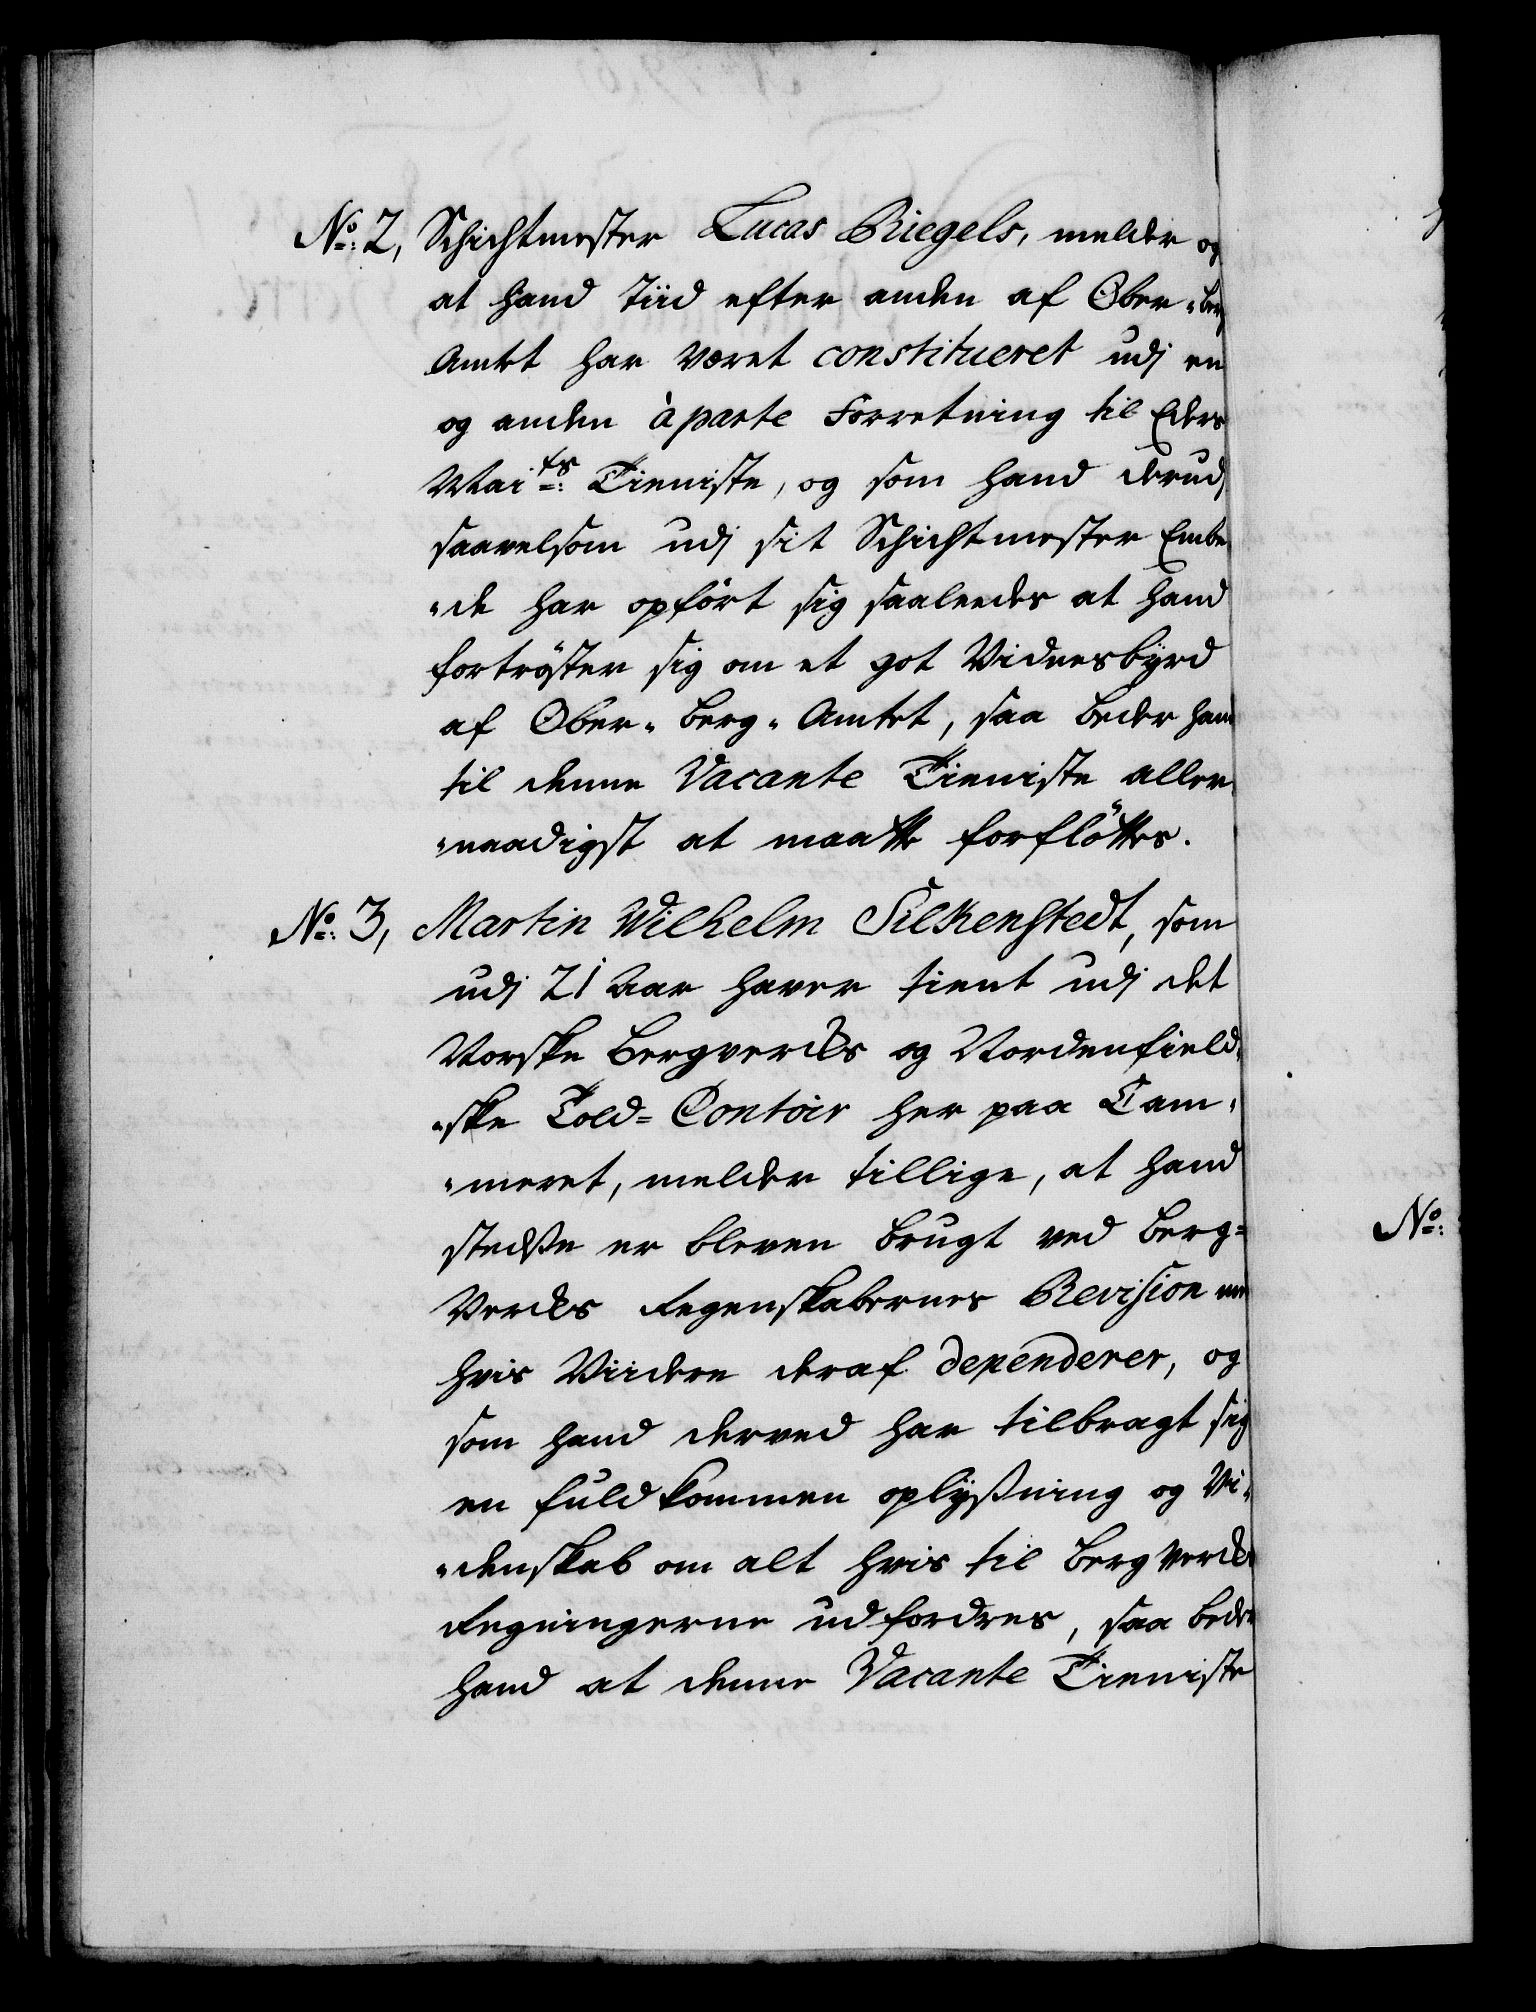 No: 2, Schichtmester Lucas Riegels, melder og
at hand Tiid efter anden af Ober-Berg
Amtet har været constitueret udj en
og anden à parte Forretning til Eders
Maits: Tieniste, og som hand derudj
saavelsom udj sit Schichtmester Embe
-de har opført sig saaleedes at hand
fortrøster sig om et got Vidnesbyrd
af Ober-Berg-Amtet, saa beder hand
til denne Vacante Tieniste aller
-naadigst at maatte forfløttes.
No: 3, Martin Wilhelm Silkenstedt, som
udj 21 Aar haver tient udj det
Norske Bergverks og Nordenfield
-ske Told-Contoir her paa Cam-
-meret, melder tillige, at hand
stedse er bleven brugt ved Berg-
Verks Regenskabernes Revision
hvis Viidere deraf dependerer, og
som hand derved har tilbragt sig
en fuldkommen oplysning og Vi-
-denskab om alt hvis til Bergverks
Regningerne udfordres, saa beder
hand at denne Vacante Tieniste
No: